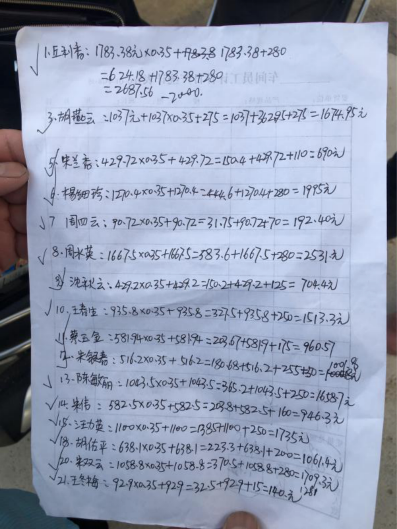 1. 王利春：1783.38元×0.35+1783.38 1783.38+280
=624.18+1783.38+280
=2687.56 -2000.
3. 胡燕云：1037元+1037×0.35+275=1037+362.95+275=1674.95元
5 宋兰春：429.72×0.35+429.72=150.4+429.72+110=690元
6. 杨细玲：1270.4×0.35+1270.4=444.6+1270.4+280=1995元
7 周四云：90.72×0.35+90.72=31.75+90.72+70=192.40元
8. 周水英：1667.5×0.35+1667.5=583.6+1667.5+280=2531元
沈秋云：429.2×0.35+429.2=150.2+429.2+125=704.4元
10. 王春生：935.8×0.35+935.8=327.5+935.8+250=1513.3元
蔡云金：581.94×0.35+581.94=203.67+581.9+175=960.57
宋银春：516.2×0.35+516.2=180.68+516.2+255+50=1001.8
13. 陈敏丽：1043.5×0.35+1043.5=365.2+1043.5+250=1658.7元
14. 朱伟：582.5×0.35+582.5=203.8+582.5+160=946.3元
15. 汪力英：1100×0.35+1100=385+1100+250=1735元
18. 胡佑平：638.1×0.35+638.1=223.3+638.1+200=1061.4元
20. 宋双云：1058.8×0.35+1058.8=370.5+1058.8+280=1709.3元
21. 王冬梅：92.9×0.35+92.9=32.5+92.9+15=140.元